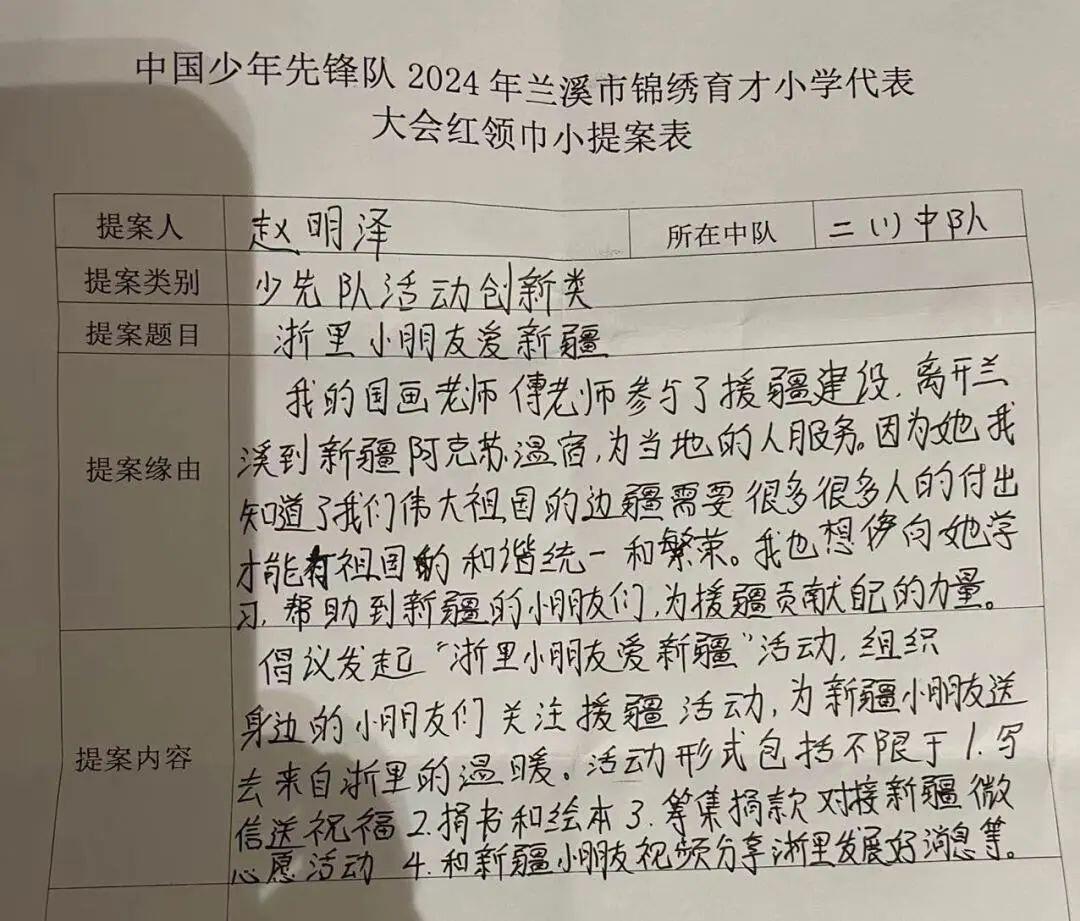 中国少年先锋队 2024 年兰溪市锦绣育才小学代表
大会红领巾小提案表
提案人 赵明泽 所在中队 二（1）中队
提案类别 少先队活动创新类
提案题目 浙里小朋友爱新疆
提案缘由
我的国画老师傅老师参与了援疆建设，离开兰
溪到新疆阿克苏温宿，为当地的人服务。因为她我
知道了我们伟大祖国的边疆需要很多很多人的付出
才能有祖国的和谐统一和繁荣。我也想向她学
习，帮助到新疆的小朋友们，为援疆贡献自己的力量。
提案内容
倡议发起“浙里小朋友爱新疆”活动，组织
身边的小朋友们关注援疆活动，为新疆小朋友送
去来自浙里的温暖。活动形式包括不限于 1.写
信送祝福 2.捐书和绘本 3.筹集捐款对接新疆微
心愿活动 4.和新疆小朋友视频分享浙里发展好消息等。